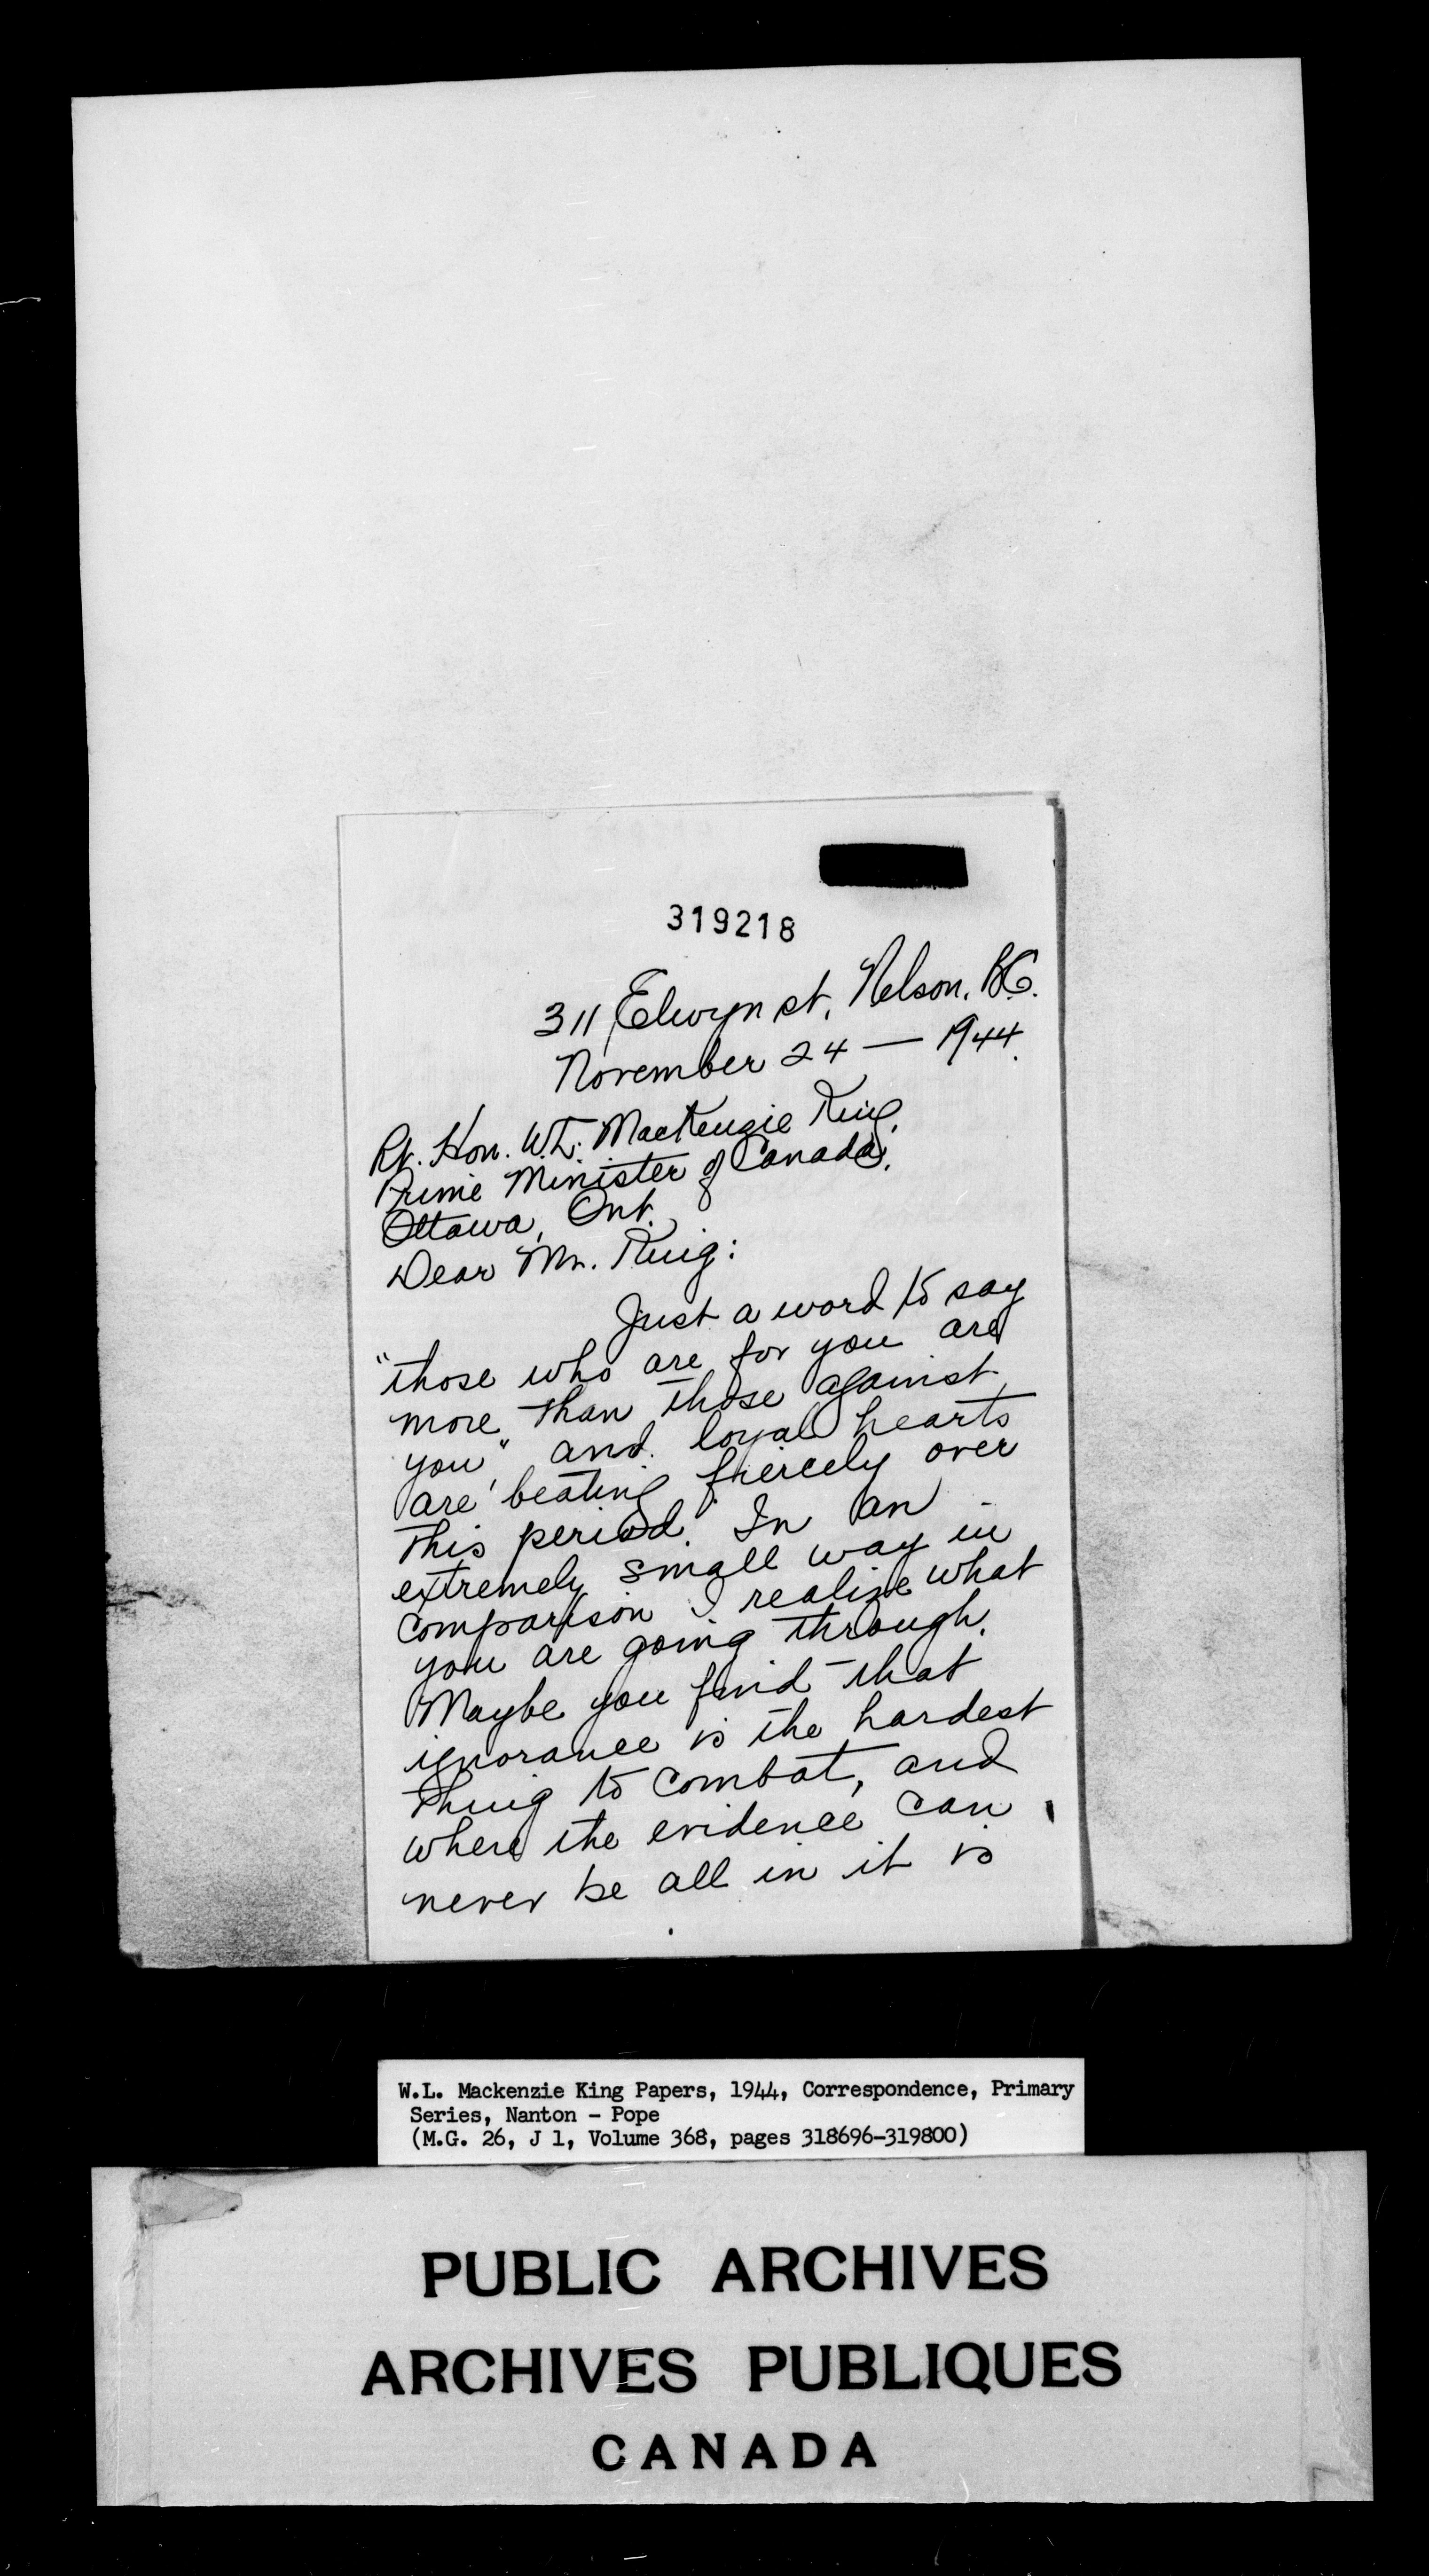 319218
311 Elwyn st, Nelson, B.C.
November 24 — 1944.
Rt. Hon. W.L. MacKenzie King,
Prime Minister of Canada,
Ottawa, Ont.
Dear Mr. King:
Just a word to say
"those who are for you are
more than those against
you" and loyal hearts
are beating fiercely over
this period. In an
extremely small way in
comparison I realize what
you are going through.
Maybe you find that
ignorance is the hardest
thing to combat, and
where the evidence can
never be all in it is
W.L. Mackenzie King Papers, 1944, Correspondence, Primary
Series, Nanton - Pope
(M.G. 26, J 1, Volume 368, pages 318696-319800)
PUBLIC ARCHIVES
ARCHIVES PUBLIQUES
CANADA